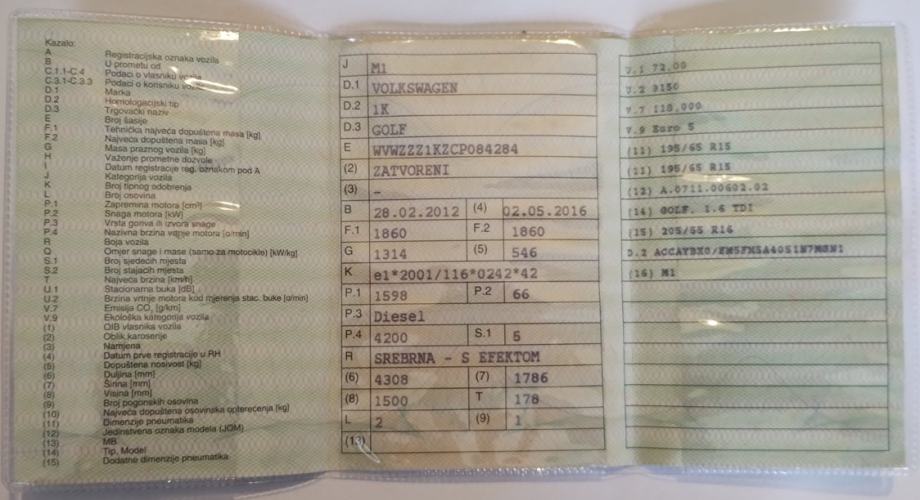 Kazalo:
A Registracijska oznaka vozila
B U prometu od
C.1.1-C.4 Podaci o vlasniku vozila
C.3.1-C.3.3 Podaci o korisniku vozila
D.1 Marka
D.2 Homologacijski tip
D.3 Trgovački naziv
E Broj šasije
F.1 Tehnička najveća dopuštena masa [kg]
F.2 Najveća dopuštena masa [kg]
G Masa praznog vozila [kg]
H Važenje prometne dozvole
I Datum registracije reg. oznakom pod A
J Kategorija vozila
K Broj tipnog odobrenja
L Broj osovina
P.1 Zapremina motora [cm³]
P.2 Snaga motora [kW]
P.3 Vrsta goriva ili izvora snage
P.4 Nazivna brzina vrtnje motora [o/min]
R Boja vozila
Q Omjer snage i mase (samo za motocikle) [kW/kg]
S.1 Broj sjedećih mjesta
S.2 Broj stajaćih mjesta
T Najveća brzina [km/h]
U.1 Stacionarna buka [dB]
U.2 Brzina vrtnje motora kod mjerenja stac. buke [o/min]
V.7 Emisija CO₂ [g/km]
V.9 Ekološka kategorija vozila
(1) OIB vlasnika vozila
(2) Oblik karoserije
(3) Namjena
(4) Datum prve registracije u RH
(5) Dopuštena nosivost [kg]
(6) Duljina [mm]
(7) Širina [mm]
(8) Visina [mm]
(9) Broj pogonskih osovina
(10) Najveća dopuštena osovinska opterećenja [kg]
(11) Dimenzije pneumatika
(12) Jedinstvena oznaka modela (JOM)
(13) MB
(14) Tip, Model
(15) Dodatne dimenzije pneumatika
J M1
D.1 VOLKSWAGEN
D.2 1K
D.3 GOLF
E WVWZZZ1KZCP084284
(2) ZATVORENI
(3) -
B 28.02.2012 (4) 02.05.2016
F.1 1860 F.2 1860
G 1314 (5) 546
K e1*2001/116*0242*42
P.1 1598 P.2 66
P.3 Diesel
P.4 4200 S.1 5
R SREBRNA - S EFEKTOM
(6) 4308 (7) 1786
(8) 1500 T 178
L 2 (9) 1
(13)
U.1 72.00
U.2 3150
V.7 118.000
V.9 Euro 5
(11) 195/65 R15
(11) 195/65 R15
(12) A.0711.00602.02
(14) GOLF. 1.6 TDI
(15) 205/55 R16
D.2
(16) M1